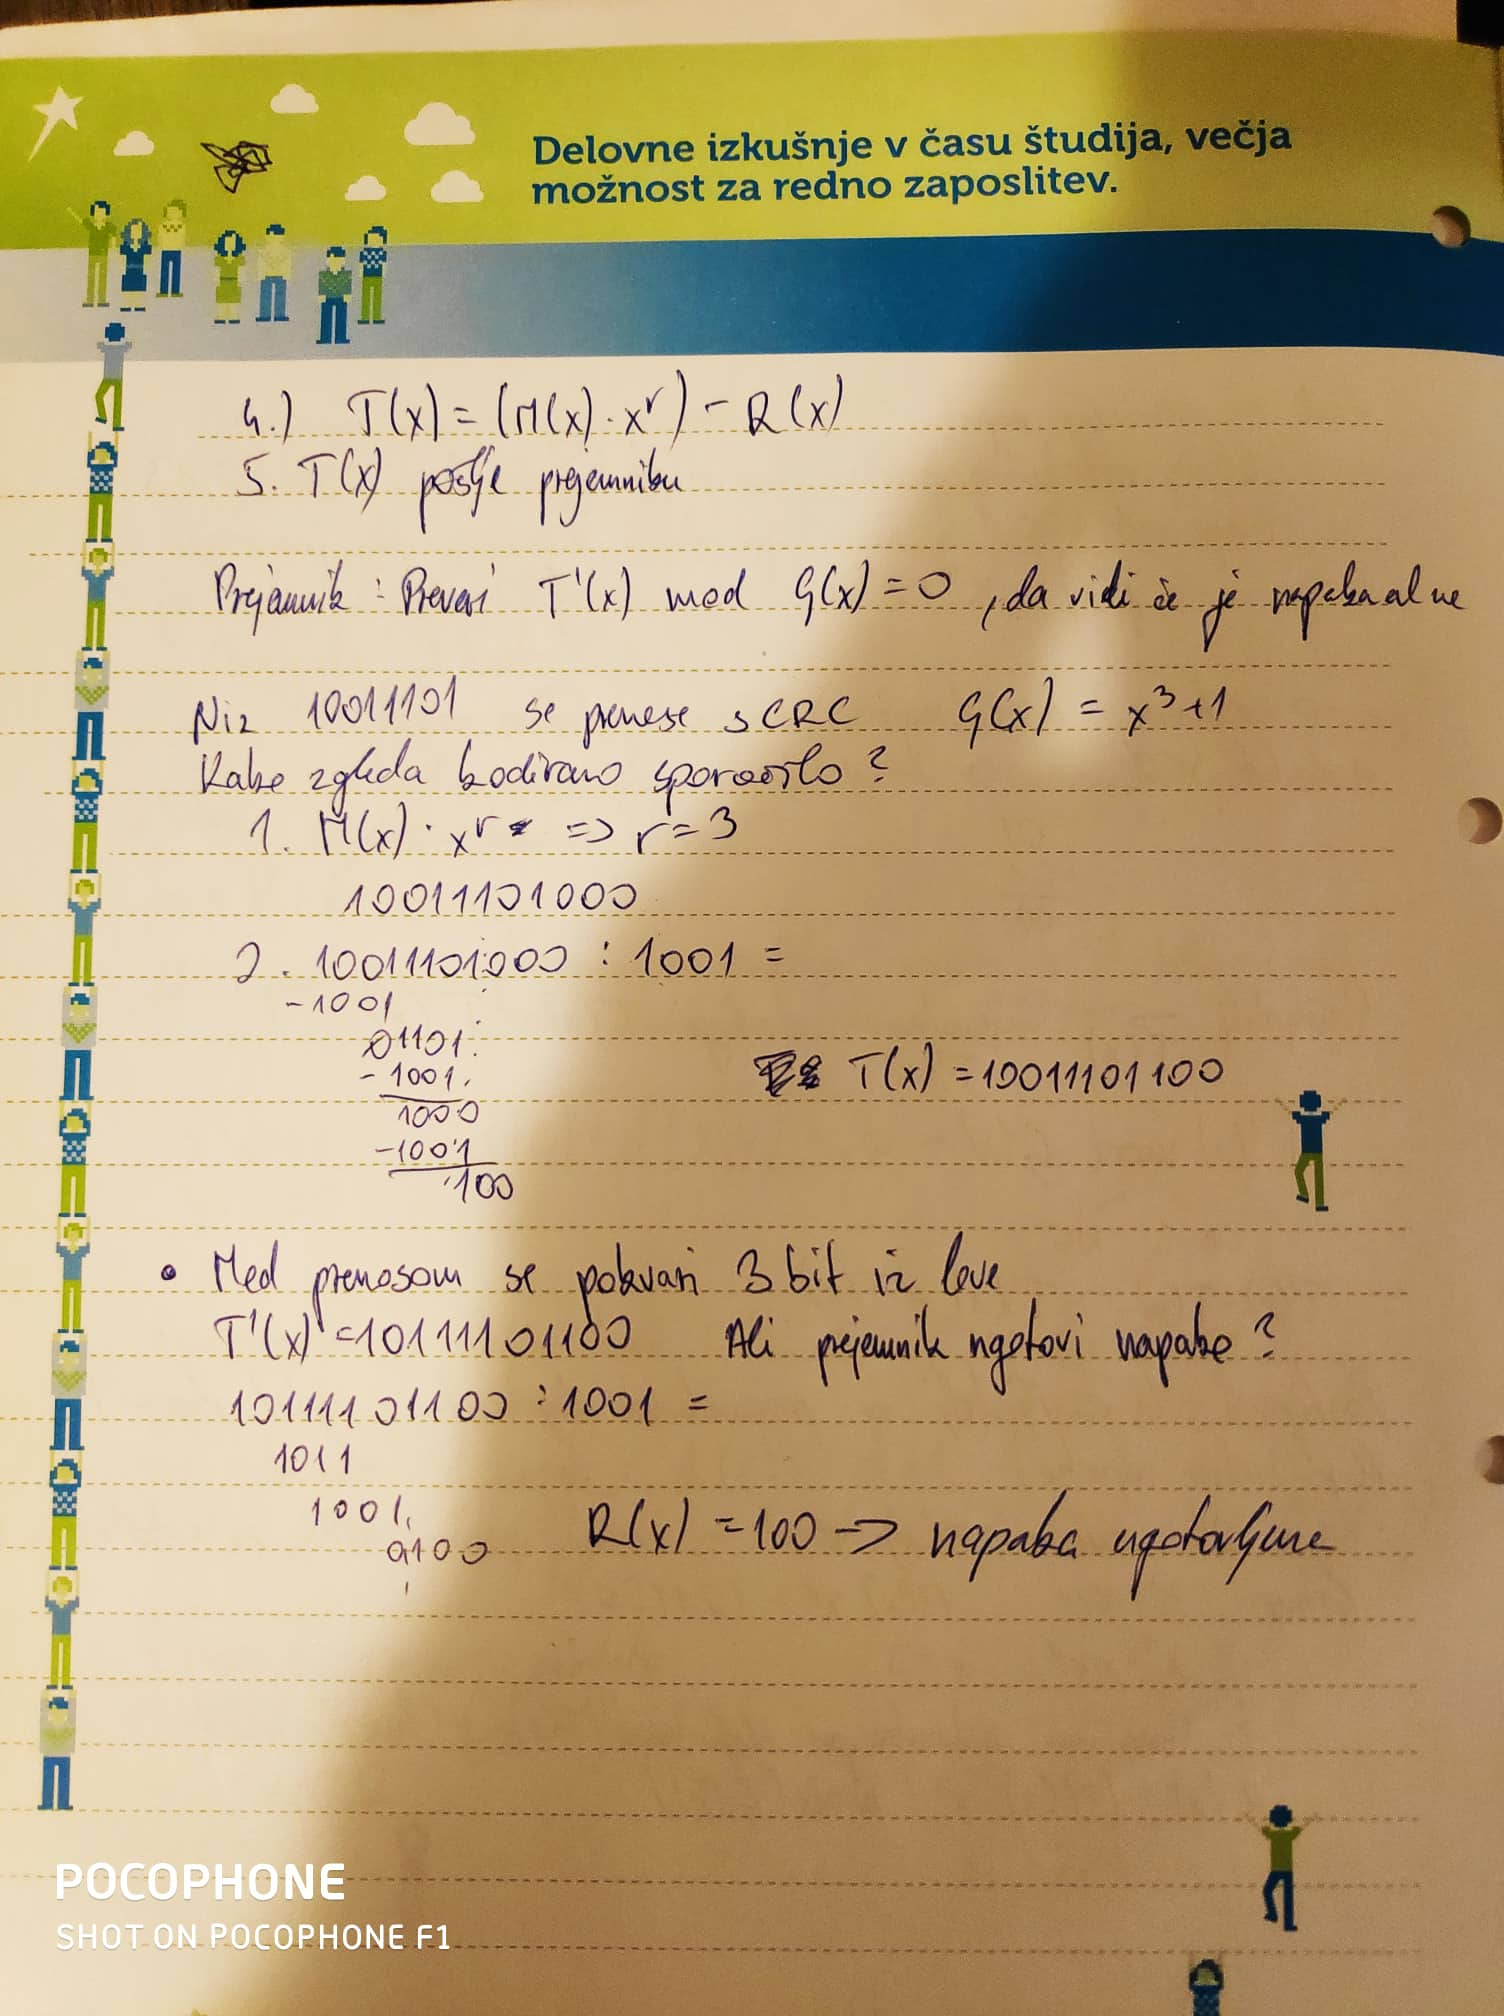 Delovne izkušnje v času študija, večja
možnost za redno zaposlitev.
4.) T(x) = (M(x) · x^r) - R(x)
5. T(x) pošlje prejemniku
Prejemnik: Preveri T'(x) mod G(x) = 0, da vidi če je napaka al ne
Niz 10011101 se prenese s CRC G(x) = x³+1
Kako zgleda kodirano sporočilo?
1. M(x) · x^r => r=3
10011101000
2. 10011101000 : 1001 =
-1001
01101
-1001
1000
-1001
100
T(x) = 10011101100
• Med prenosom se pokvari 3 bit iz leve
T'(x) = 10111101100 Ali prejemnik ugotovi napako?
10111101100 : 1001 =
1011
1001
0100
R(x) = 100 -> napaka ugotovljena
POCOPHONE
SHOT ON POCOPHONE F1